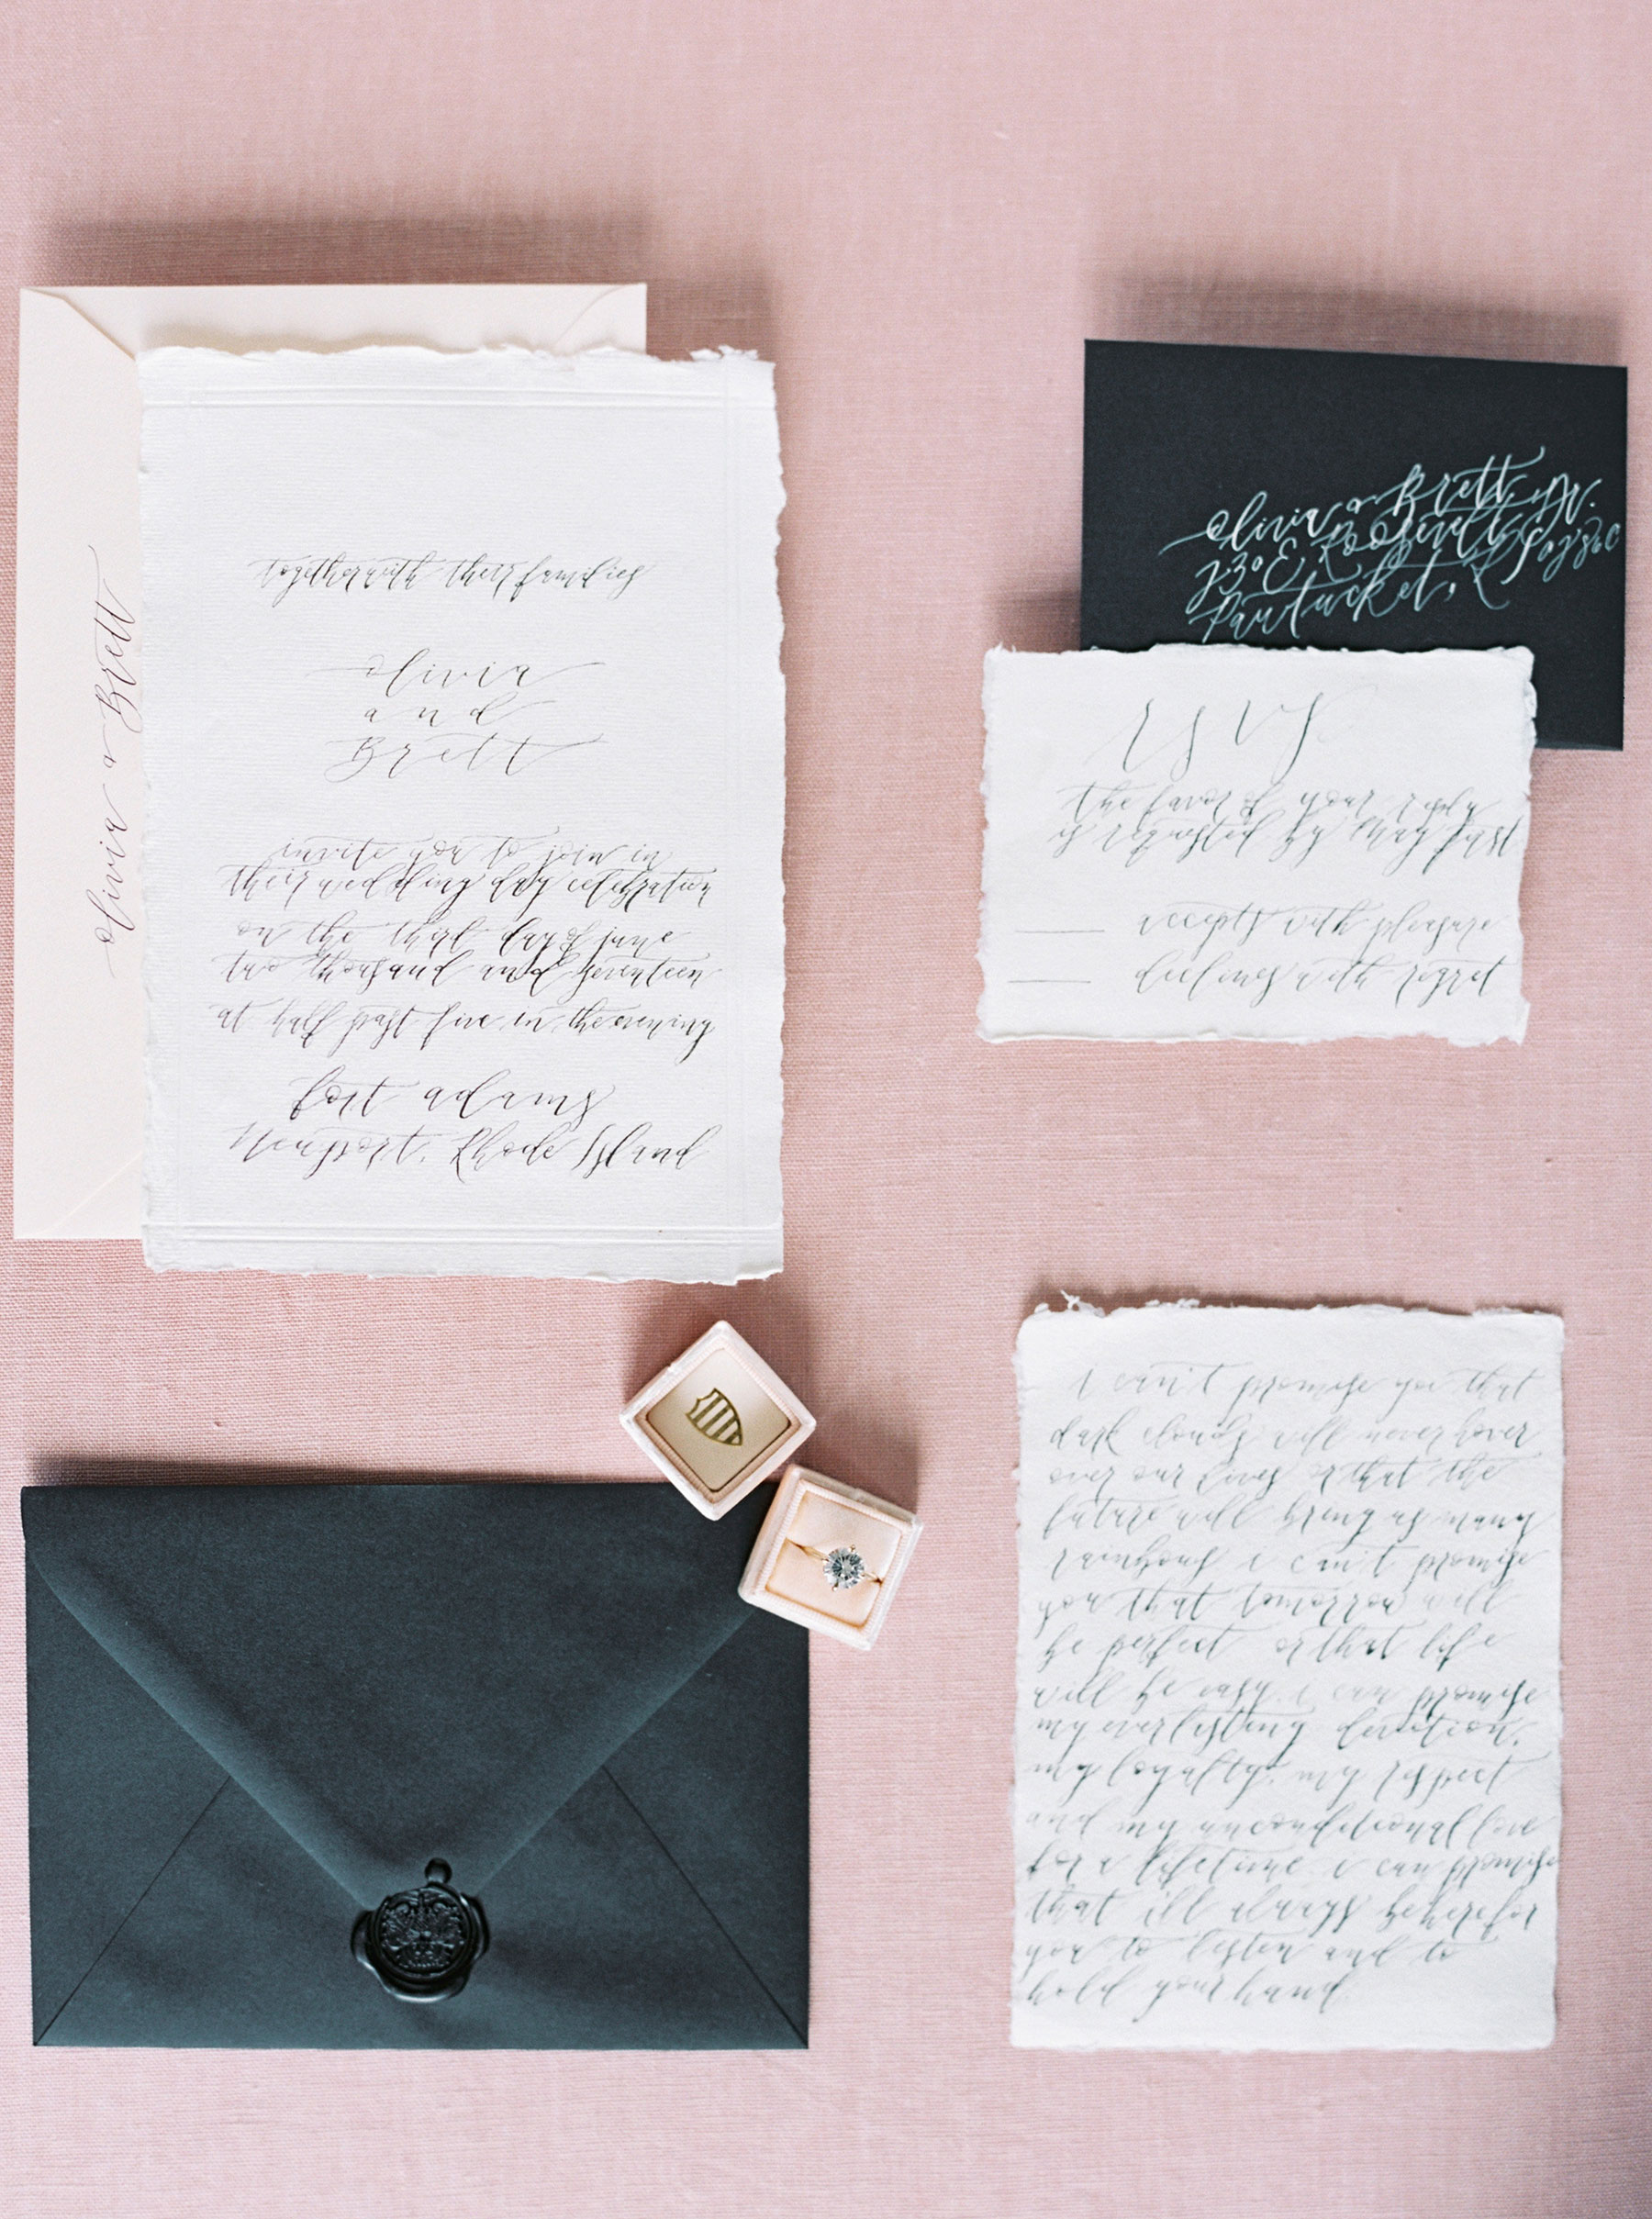 olivia & Brett
together with their families
olivia
and
Brett
invite you to join in
their wedding day celebration
on the third day of june
two thousand and seventeen
at half past five in the evening
fort adams
Newport, Rhode Island
olivia & Brett
E Roosevelt
Pawtucket, RI
rsvp
the favor of your reply
is requested by may first
accepts with pleasure
declines with regret
i can't promise you that
dark clouds will never hover
over our lives or that the
future will bring us many
rainbows i can't promise
you that tomorrow will
be perfect or that life
will be easy. i can promise
my everlasting devotion,
my loyalty, my respect
and my unconditional love
for a lifetime i can promise
that ill always be here for
you to listen and to
hold your hand